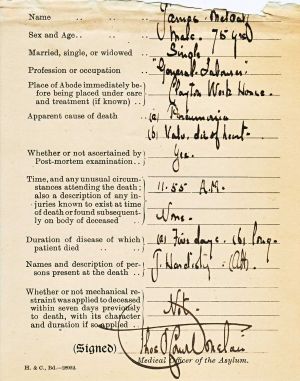 Name James
Sex and Age Male. 75 yrs
Married, single, or widowed Single
Profession or occupation "General Labourer"
Place of Abode immediately be-
fore being placed under care
and treatment (if known) Clayton Work House.
Apparent cause of death (a) Pneumonia
(b) Valv. dis of heart.
Whether or not ascertained by
Post-mortem examination Yes.
Time, and any unusual circum-
stances attending the death;
also a description of any in-
juries known to exist at time
of death or found subsequent-
ly on body of deceased
11.55 A.M.
None.
Duration of disease of which
patient died (a) Five days. (b) long.
Names and description of per-
sons present at the death J. Hardisty (Att).
Whether or not mechanical re-
straint was applied to deceased
within seven days previously
to death, with its character
and duration if so applied Not.
(Signed)
Medical Officer of the Asylum.
H. & C., Ld.—